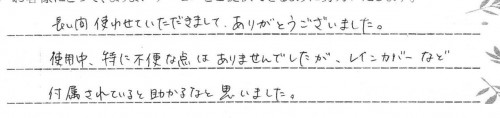 長い間使わせていただきまして、ありがとうございました。
使用中、特に不便な点はありませんでしたが、レインカバーなど
付属されていると助かるなと思いました。